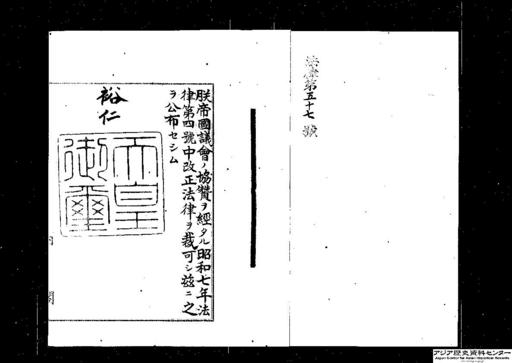 法律第五十七號
朕帝國議會ノ協贊ヲ經タル昭和七年法
律第四號中改正法律ヲ裁可シ茲ニ之
ヲ公布セシム
裕仁
天皇
御璽
内
閣
アジア歴史資料センター
Japan Center for Asian Historical Records